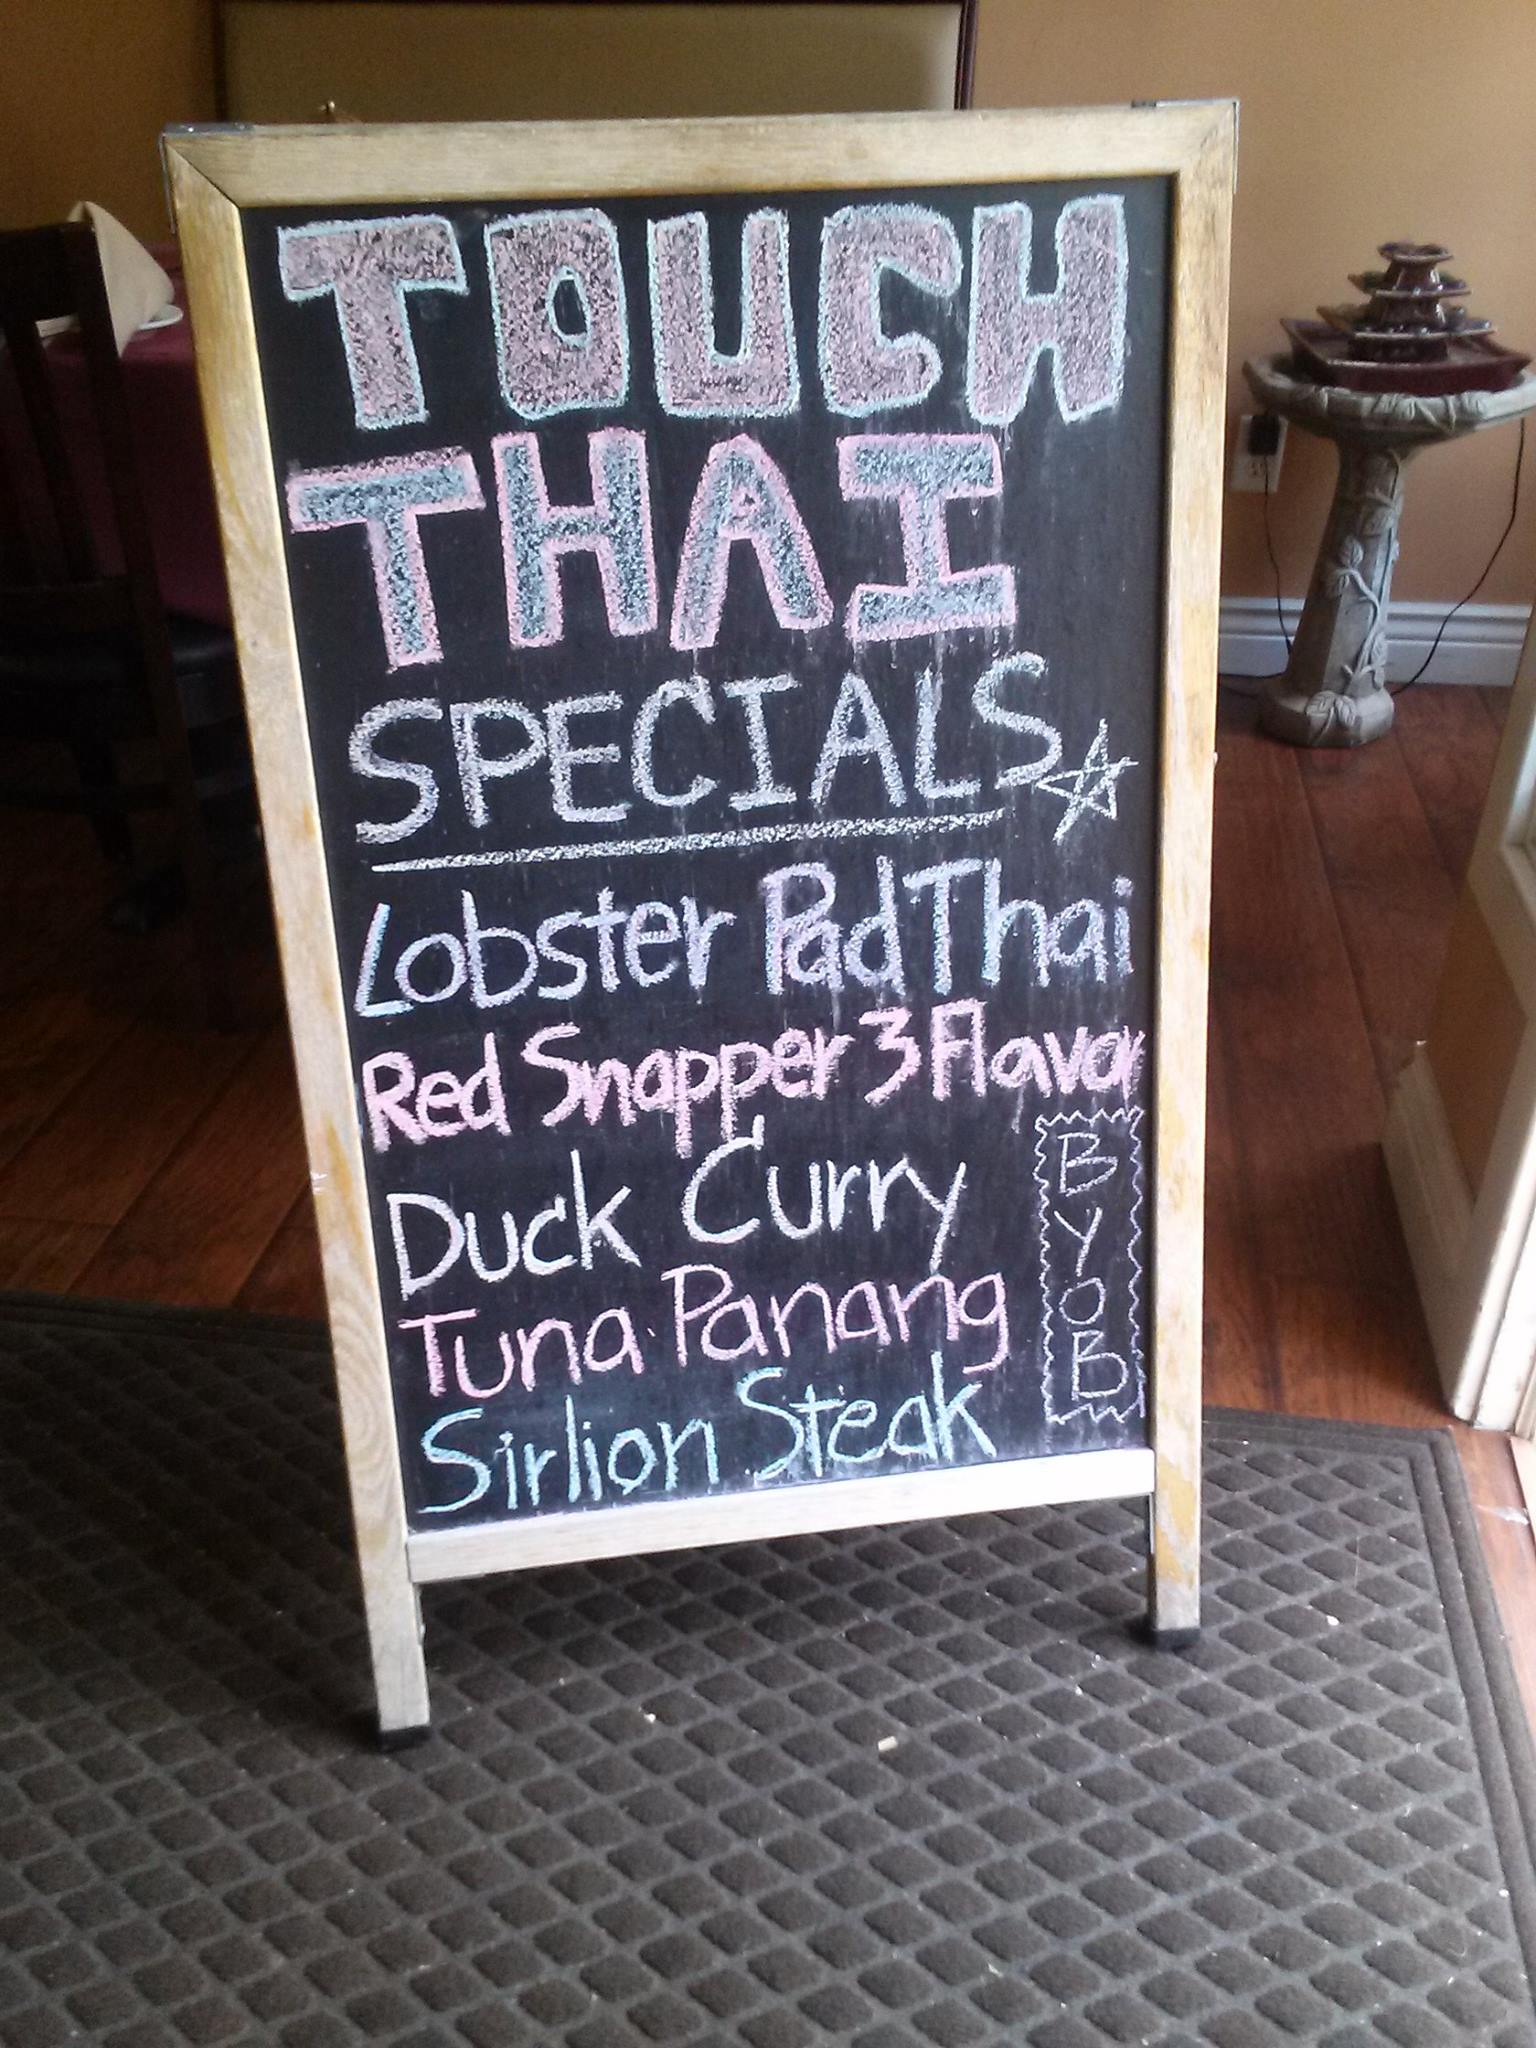 TOUCH
THAI
SPECIALS
Lobster Pad Thai
Red Snapper 3 Flavor
Duck Curry
Tuna Panang
Sirlion Steak
BYOB